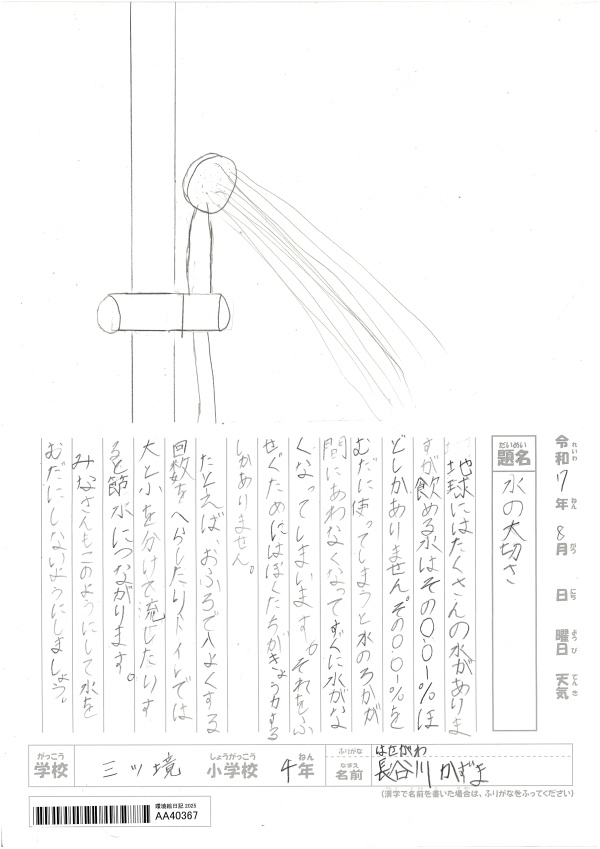 令和7年8月 日 曜日 天気
れいわ ねん がつ にち ようび てんき
だいめい
題名
水の大切さ
地球にはたくさんの水がありま
すが飲める水はその0.01%ほ
どしかありません。その0.01%を
むだに使ってしまうと水のろかが
間にあわなくなってすぐに水がな
くなってしまいます。それをふ
せぐためにはぼくたちがきょう力する
しかありません。
たとえば、おふろで入よくする
回数をへらしたりトイレでは
大と小を分けて流したりす
ると節水につながります。
みなさんもこのようにして水を
むだにしないようにしましょう。
がっこう しょうがっこう ねん
学校 三ツ境 小学校 4年
ふりがな はせがわ
なまえ
名前 長谷川かずま
(漢字で名前を書いた場合は、ふりがなをふってください)
環境絵日記 2025
AA40367